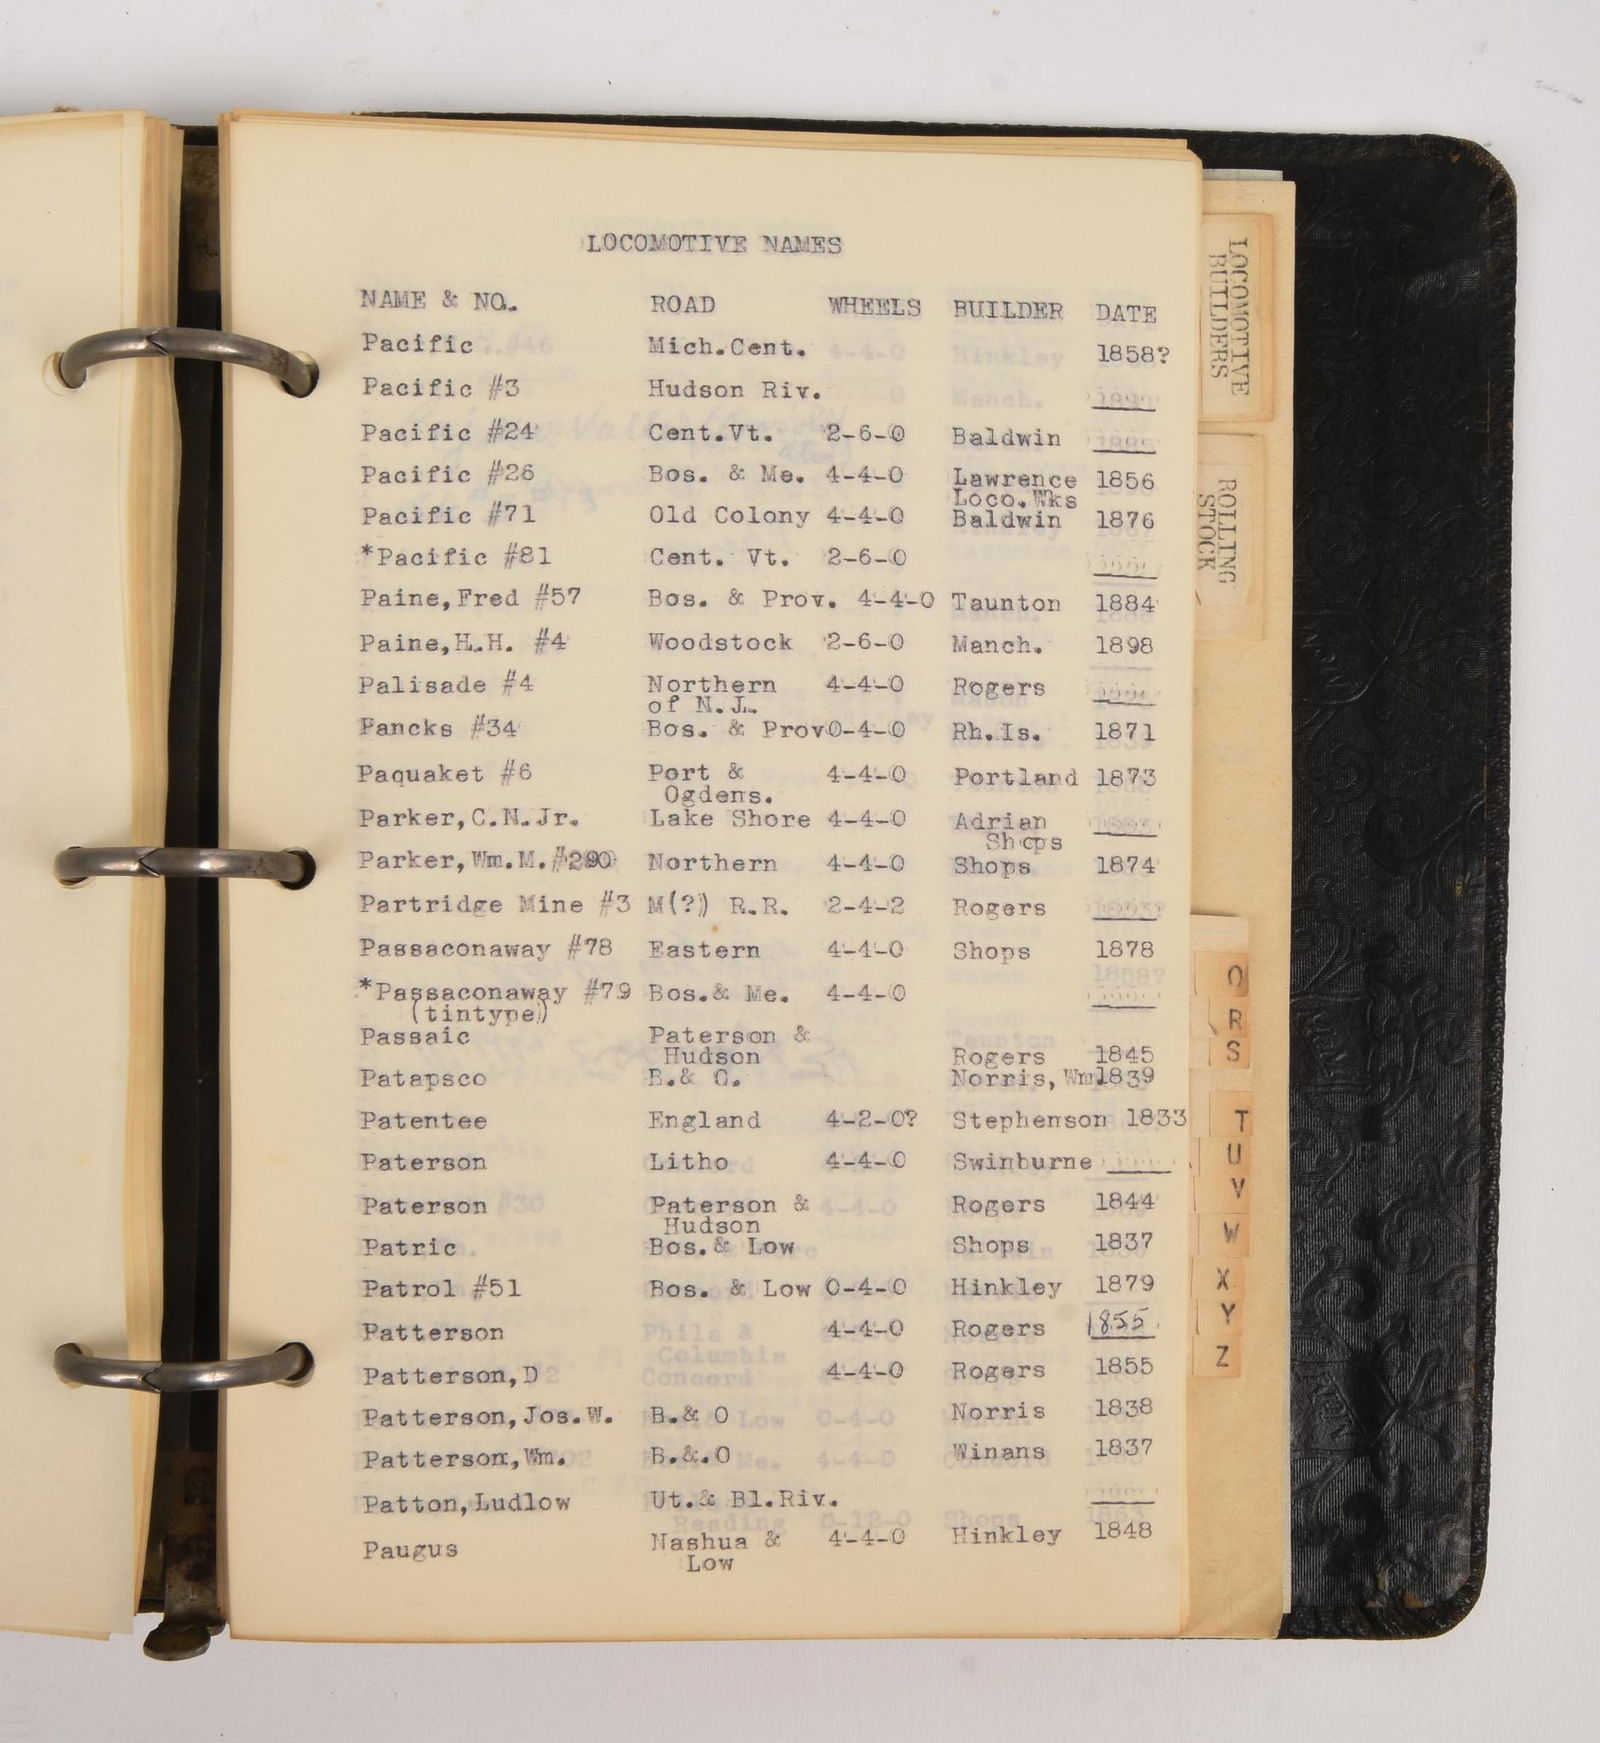 LOCOMOTIVE NAMES
NAME & NO. ROAD WHEELS BUILDER DATE
Pacific Mich.Cent. 1858?
Pacific #3 Hudson Riv.
Pacific #24 Cent.Vt. 2-6-0 Baldwin
Pacific #26 Bos. & Me. 4-4-0 Lawrence 1856
Loco.Wks
Pacific #71 Old Colony 4-4-0 Baldwin 1876
*Pacific #81 Cent. Vt. 2-6-0
Paine,Fred #57 Bos. & Prov. 4-4-0 Taunton 1884
Paine,H.H. #4 Woodstock 2-6-0 Manch. 1898
Palisade #4 Northern 4-4-0 Rogers
of N.J.
Pancks #34 Bos. & Prov 0-4-0 Rh.Is. 1871
Paquaket #6 Port & 4-4-0 Portland 1873
Ogdens.
Parker,C.N.Jr. Lake Shore 4-4-0 Adrian
Shops
Parker,Wm.M.#290 Northern 4-4-0 Shops 1874
Partridge Mine #3 M(?) R.R. 2-4-2 Rogers
Passaconaway #78 Eastern 4-4-0 Shops 1878
*Passaconaway #79 Bos.& Me. 4-4-0
(tintype)
Passaic Paterson &
Hudson Rogers 1845
Patapsco B.& O. Norris,Wm.1839
Patentee England 4-2-0? Stephenson 1833
Paterson Litho 4-4-0 Swinburne
Paterson Paterson & Rogers 1844
Hudson
Patric Bos.& Low Shops 1837
Patrol #51 Bos. & Low 0-4-0 Hinkley 1879
Patterson 4-4-0 Rogers 1855
Patterson,D 4-4-0 Rogers 1855
Patterson,Jos.W. B.& O Norris 1838
Patterson,Wm. B.&.O Winans 1837
Patton,Ludlow Ut.& Bl.Riv.
Paugus Nashua & 4-4-0 Hinkley 1848
Low
LOCOMOTIVE
BUILDERS
ROLLING
STOCK
Q
R
S
T
U
V
W
X
Y
Z